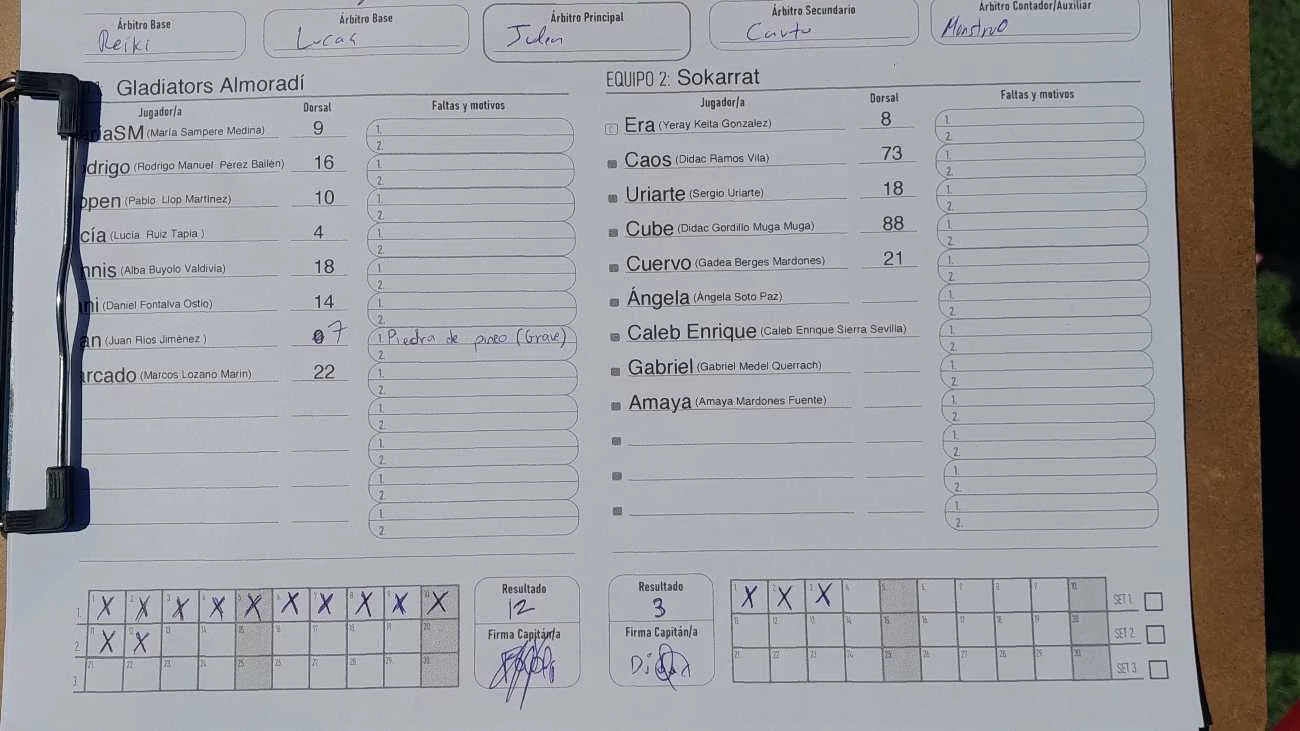 Árbitro Base Árbitro Base Árbitro Principal Árbitro Secundario Árbitro Contador/Auxiliar
Reiki Lucas Julen Monstruo
Gladiators Almoradí
Jugador/a Dorsal Faltas y motivos
ríaSM (María Sampere Medina) 9 1.
2.
drigo (Rodrigo Manuel Pérez Bailén) 16 1.
2.
ppen (Pablo Llop Martínez) 10 1.
2.
cía (Lucía Ruiz Tapia ) 4 1.
2.
nnis (Alba Buyolo Valdivia) 18 1.
2.
ni (Daniel Fontalva Ostio) 14 1.
2.
an (Juan Rios Jiménez ) 7 1. Piedra de pineo (Grave)
2.
arcado (Marcos Lozano Marin) 22 1.
2.
1.
2.
1.
2.
1.
2.
1.
2.
EQUIPO 2: Sokarrat
Jugador/a Dorsal Faltas y motivos
Era (Yeray Keita Gonzalez) 8 1.
2.
Caos (Didac Ramos Vila) 73 1.
2.
Uriarte (Sergio Uriarte) 18 1.
2.
Cube (Didac Gordillo Muga Muga) 88 1.
2.
Cuervo (Gadea Berges Mardones) 21 1.
2.
Ángela (Ángela Soto Paz) 1.
2.
Caleb Enrique (Caleb Enrique Sierra Sevilla) 1.
2.
Gabriel (Gabriel Medel Querrach) 1.
2.
Amaya (Amaya Mardones Fuente) 1.
2.
1.
2.
1.
2.
1.
2.
1. 1 X 2 X 3 X 4 X 5 X 6 X 7 X 8 X 9 X 10 X
2. 11 X 12 X 13 14 15 16 17 18 19 20
3. 21 22 23 24 25 26 27 28 29 30
Resultado
12
Firma Capitán/a
Resultado
3
Firma Capitán/a
1 X 2 X 3 X 4 5 6 7 8 9 10 SET 1
11 12 13 14 15 16 17 18 19 20 SET 2
21 22 23 24 25 26 27 28 29 30 SET 3